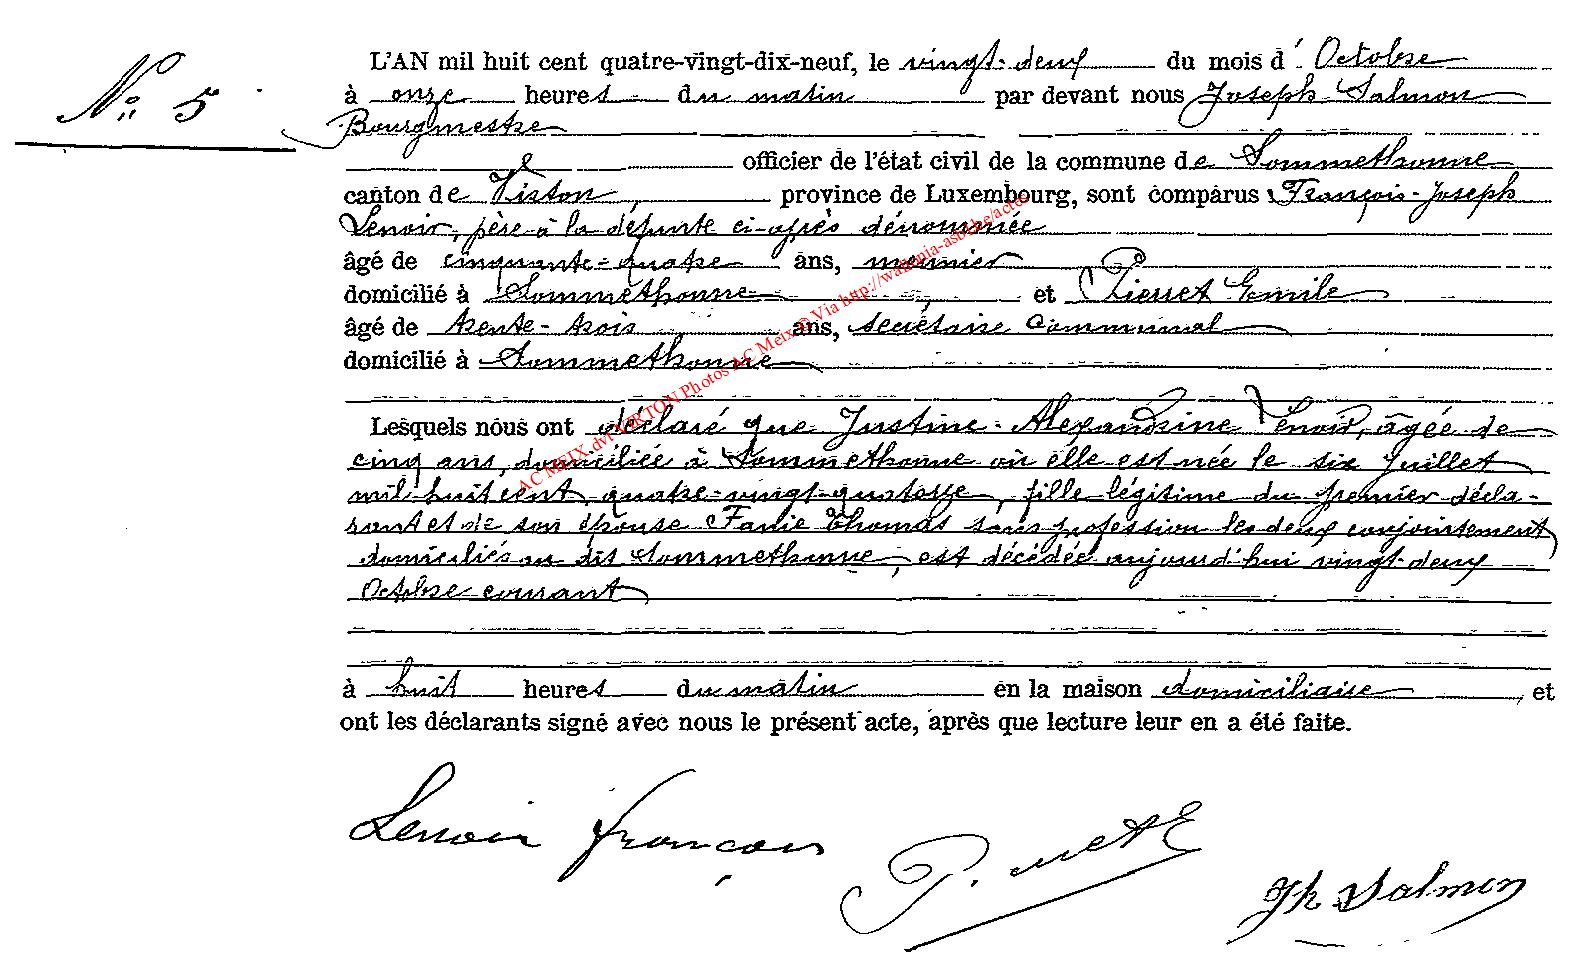 N° 5
L'AN mil huit cent quatre-vingt-dix-neuf, le vingt-deux du mois d' Octobre
à onze heures du matin par devant nous Joseph Salmon
Bourgmestre
officier de l'état civil de la commune de Sommethonne
canton de Virton, province de Luxembourg, sont comparus François-Joseph
Lenoir, père à la défunte ci-après dénommée
âgé de cinquante-quatre ans, meunier
domicilié à Sommethonne, et Pierret Emile
âgé de trente-trois ans, secrétaire communal
domicilié à Sommethonne
Lesquels nous ont déclaré que Justine-Alexandrine Lenoir, âgée de
cinq ans, domiciliée à Sommethonne où elle est née le six Juillet
mil-huit cent quatre-vingt-quatorze, fille légitime du premier décla-
rant et de son épouse Fanie Thomas sans profession les deux conjointement
domiciliés au dit Sommethonne, est décédée aujourd'hui vingt-deux
Octobre courant
à huit heures du matin en la maison domiciliaire, et
ont les déclarants signé avec nous le présent acte, après que lecture leur en a été faite.
Lenoir françois
P. rret E
Jh Salmon
AC MEIX dvt VIRTON Photos AC Meix © Via http://wallonia-asbl.be/actes